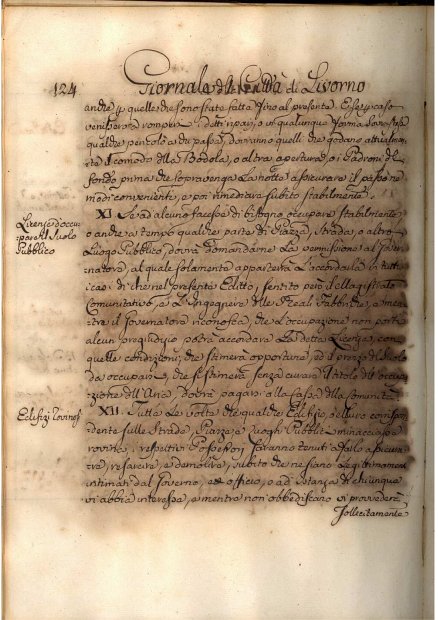 124
Giornale della Città di Livorno
anche per quelle che sono state fatte fino al presente. E se per caso
venissero a rompersi i detti ripari, o in qualunque forma sovrastasse
qualche pericolo a chi passa, dovranno quelli che godano attualmen
te il comodo della Bodola, o altra apertura, o i Padroni del
fondo prima che sopravvenga la notte assicurare il passo ne
modi convenienti, e poi rimediare subito stabilmente.
Licenze d'occu
pare il suolo
Pubblico
XI. Se ad alcuno facesse di bisogno occupare stabilmente,
o anche a tempo qualche parte di Piazza, Strada, o altro
Luogo Pubblico, dovrà domandarne la permissione al Gover
natore, al quale solamente apparterrà l'accordarla in tutti
i casi di che nel presente Editto, sentito però il Magistrato
Comunitativo, e l'Ingegnere delle Reali Fabbriche, e men
tre il Governatore riconosca, che l'occupazione non porti
alcun pregiudizio potrà accordare la detta Licenza, con
quelle condizioni, che stimerà opportune, ed il prezzo del suolo
da occuparsi, che si stimerà senza curare il titolo dell'occupa
zione dell'Aria, dovrà pagarsi alla Cassa della Comunità.
Edifizi Rovinosi
XII. Tutte le volte che qualche Edifizio, o Muro corrispon
dente sulle Strade, Piazze, e Luoghi Pubblici minacciasse
rovina, i respettivi Possessori saranno tenuti a farlo assicura
re, resarcire, e demolire, subito che ne siano Legittimamente
intimati dal Governo, ex officio, o ad istanza di chiunque
vi abbia interesse, e mentre non obbediscano vi provvederà
sollecitamente